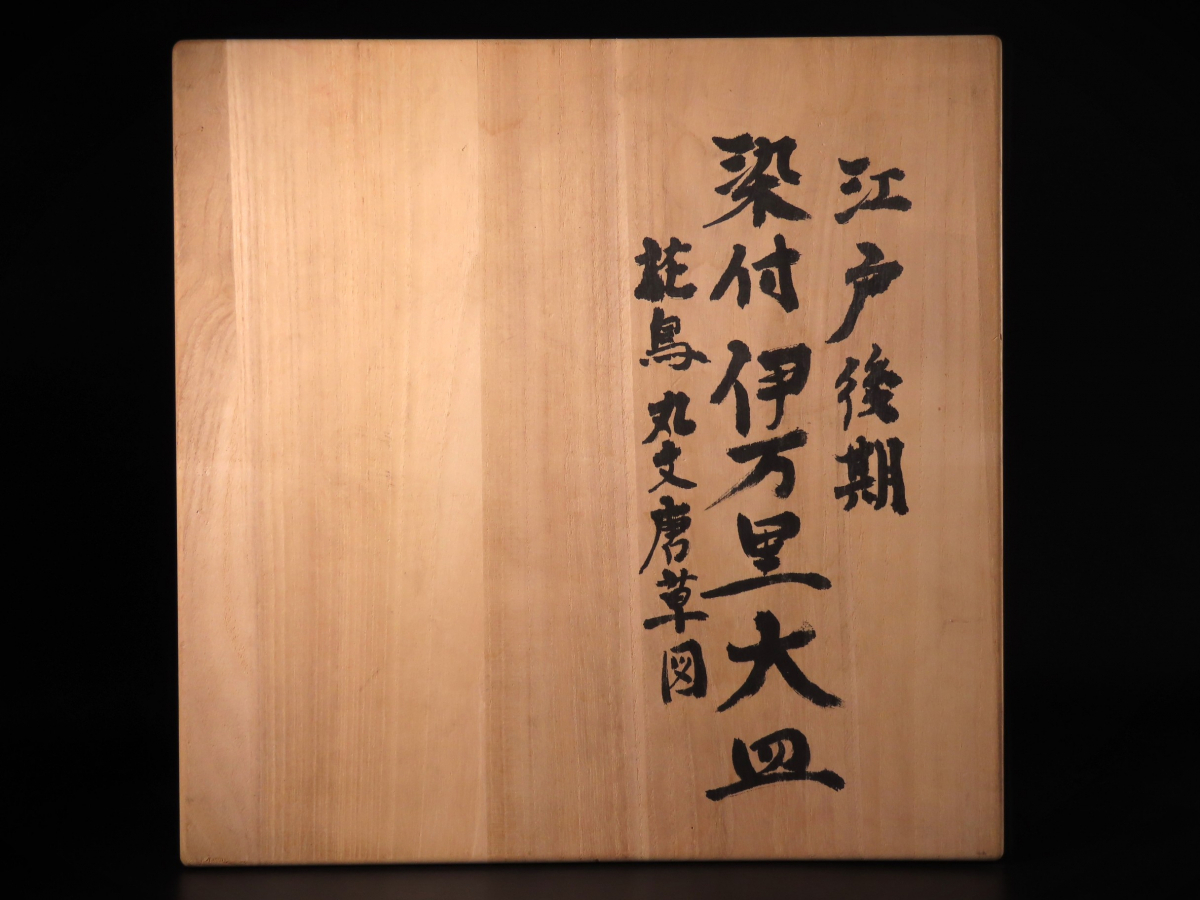 江戸後期
染付伊万里大皿
鳥丸文唐草図